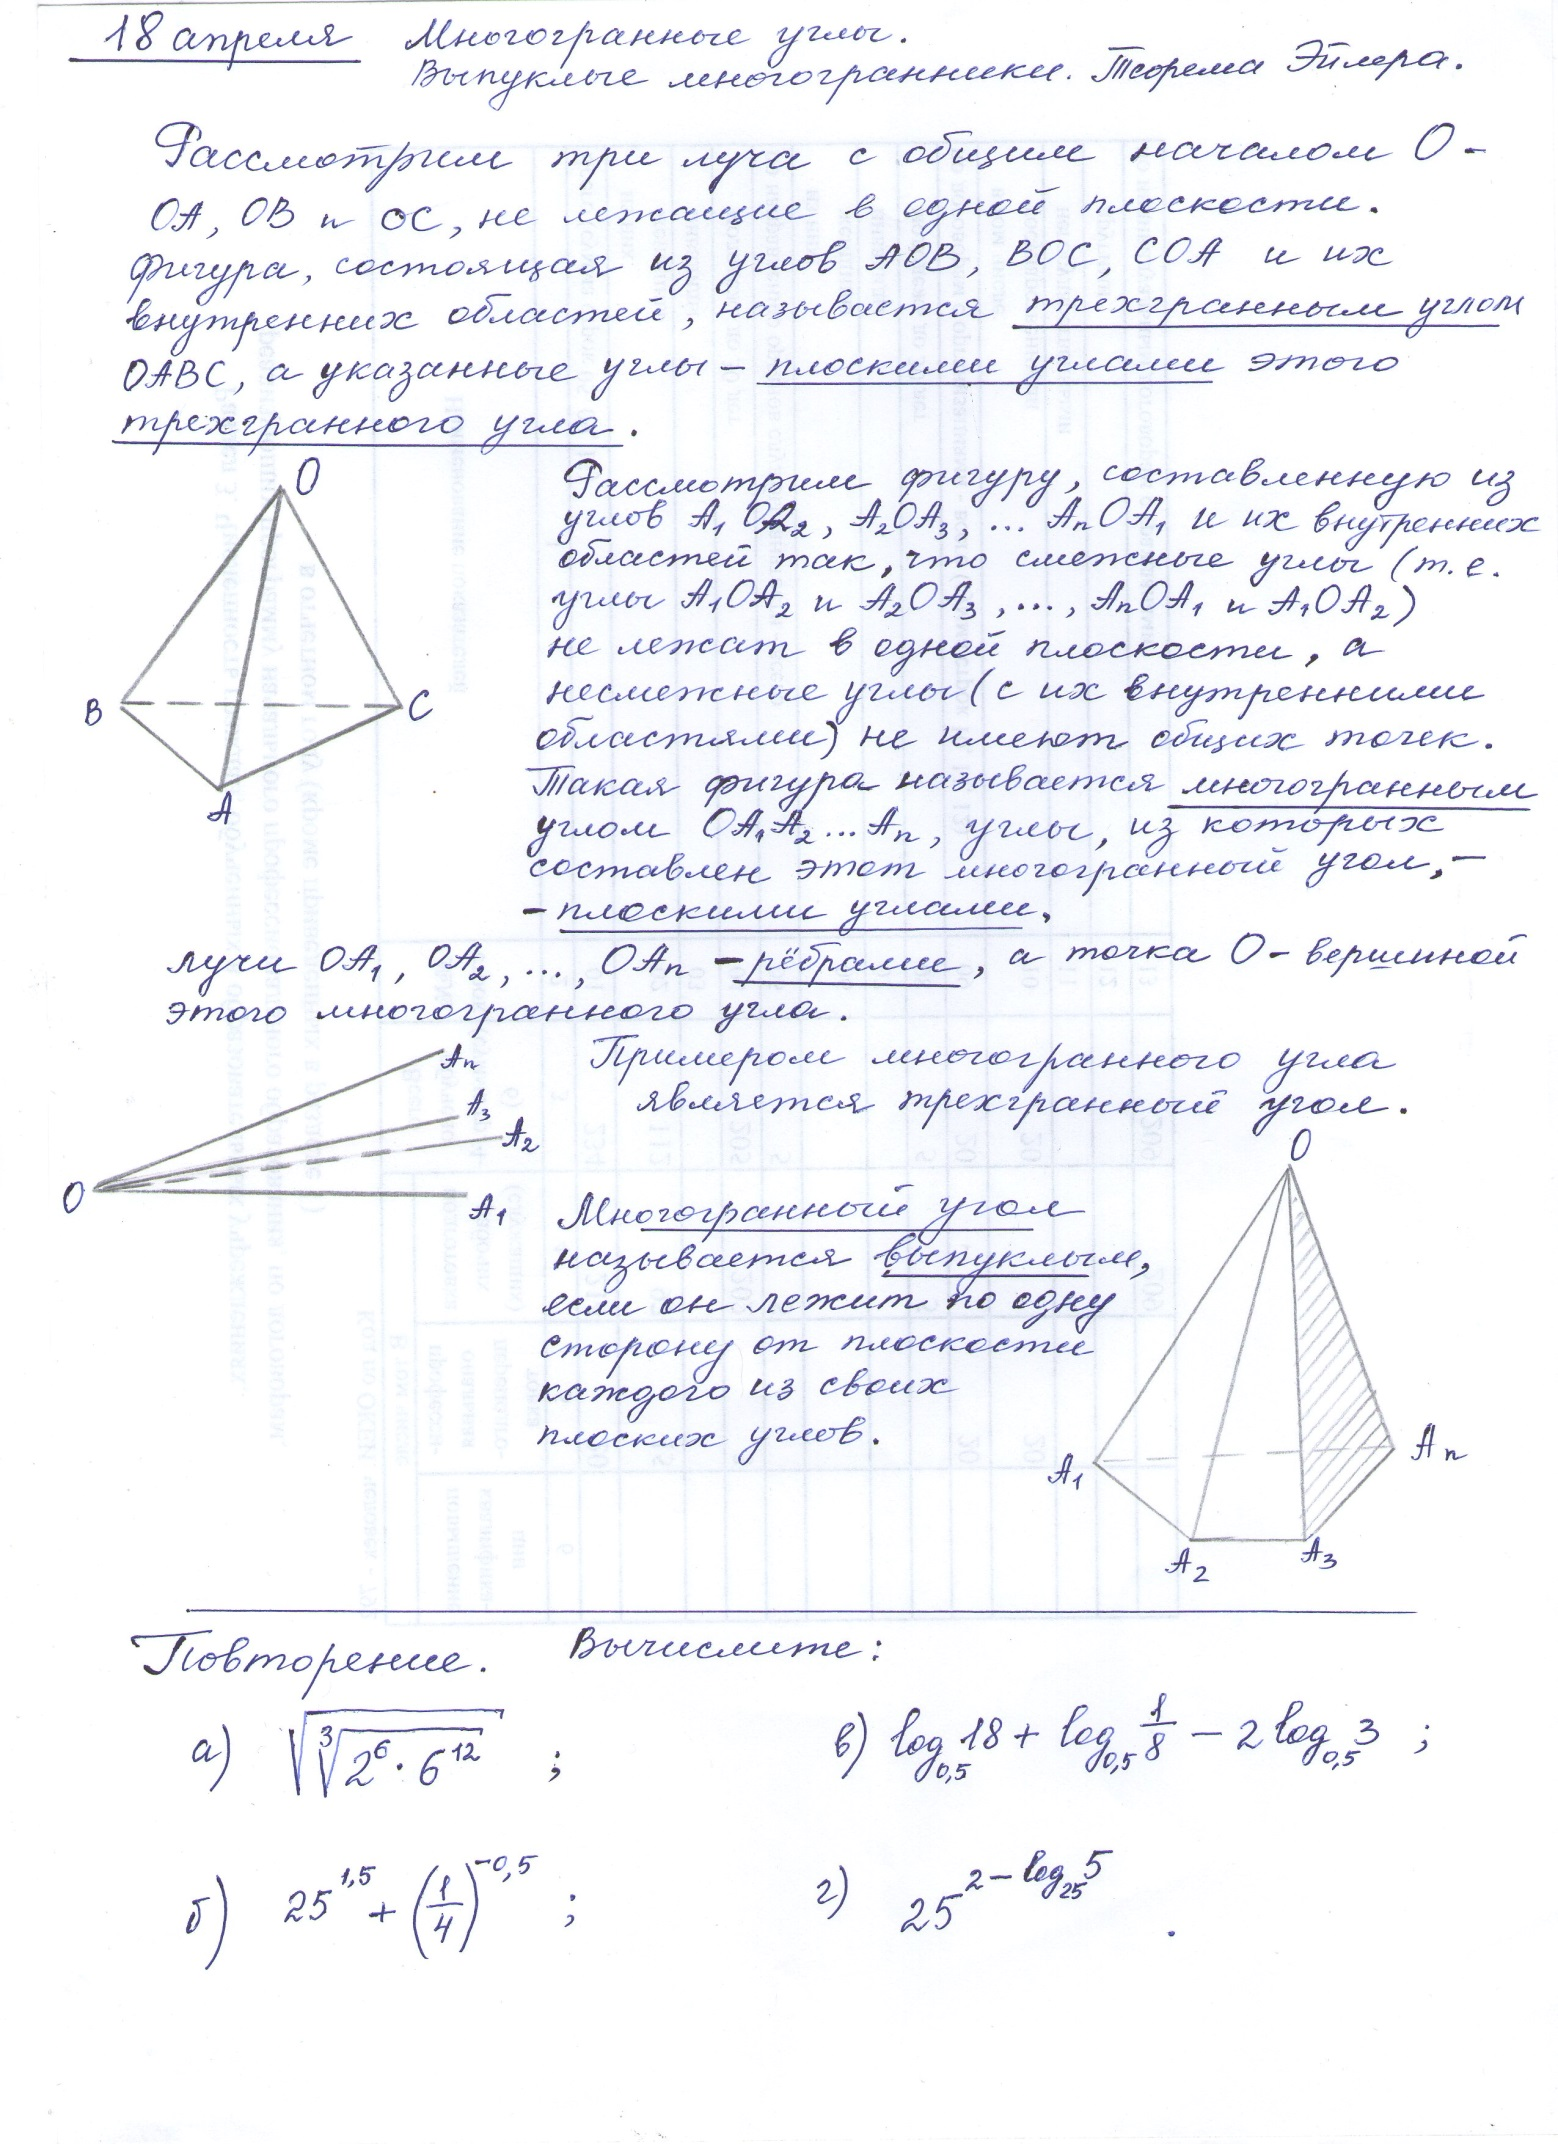 18 апреля Многогранные углы.
Выпуклые многогранники. Теорема Эйлера.
Рассмотрим три луча с общим началом О -
ОА, ОВ и ОС, не лежащие в одной плоскости.
Фигура, состоящая из углов АОВ, ВОС, СОА и их
внутренних областей, называется трехгранным углом
ОАВС, а указанные углы – плоскими углами этого
трехгранного угла.
О
В
С
А
Рассмотрим фигуру, составленную из
углов А₁ОА₂, А₂ОА₃, ... АnОА₁ и их внутренних
областей так, что смежные углы (т.е.
углы А₁ОА₂ и А₂ОА₃, ..., АnОА₁ и А₁ОА₂)
не лежат в одной плоскости, а
несмежные углы (с их внутренними
областями) не имеют общих точек.
Такая фигура называется многогранным
углом ОА₁А₂...Аn, углы, из которых
составлен этот многогранный угол, –
– плоскими углами,
лучи ОА₁, ОА₂, ..., ОАn – рёбрами, а точка О – вершиной
этого многогранного угла.
Аn
А₃
А₂
О
А₁
Примером многогранного угла
является трехгранный угол.
Многогранный угол
называется выпуклым,
если он лежит по одну
сторону от плоскости
каждого из своих
плоских углов.
О
А₁
Аn
А₂
А₃
Повторение. Вычислите:
а) √(∛(2⁶ · 6¹²)) ;
в) log₀,₅ 18 + log₀,₅ 1/8 – 2 log₀,₅ 3 ;
б) 25^1,5 + (1/4)^-0,5 ;
г) 25^(2 – log₂₅ 5) .